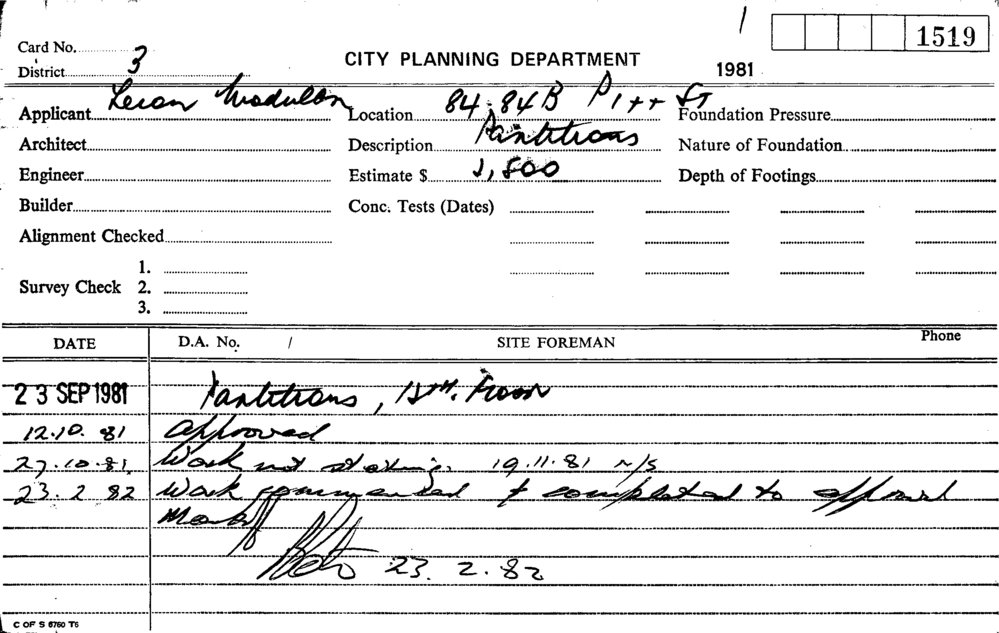 1519
Card No.
District 3
CITY PLANNING DEPARTMENT
1981
Applicant
Location 84-84B Pitt St
Foundation Pressure
Architect
Description Partitions
Nature of Foundation
Engineer
Estimate $ 1,800
Depth of Footings
Builder
Conc. Tests (Dates)
Alignment Checked
Survey Check
1.
2.
3.
DATE D.A. No. / SITE FOREMAN Phone
23 SEP 1981 Partitions, Floor
12.10.81 Approved
27.10.81. Work not starting. 19.11.81 n/s
23.2.82 Work commenced & completed to approval
23.2.82
C OF S 6760 T6